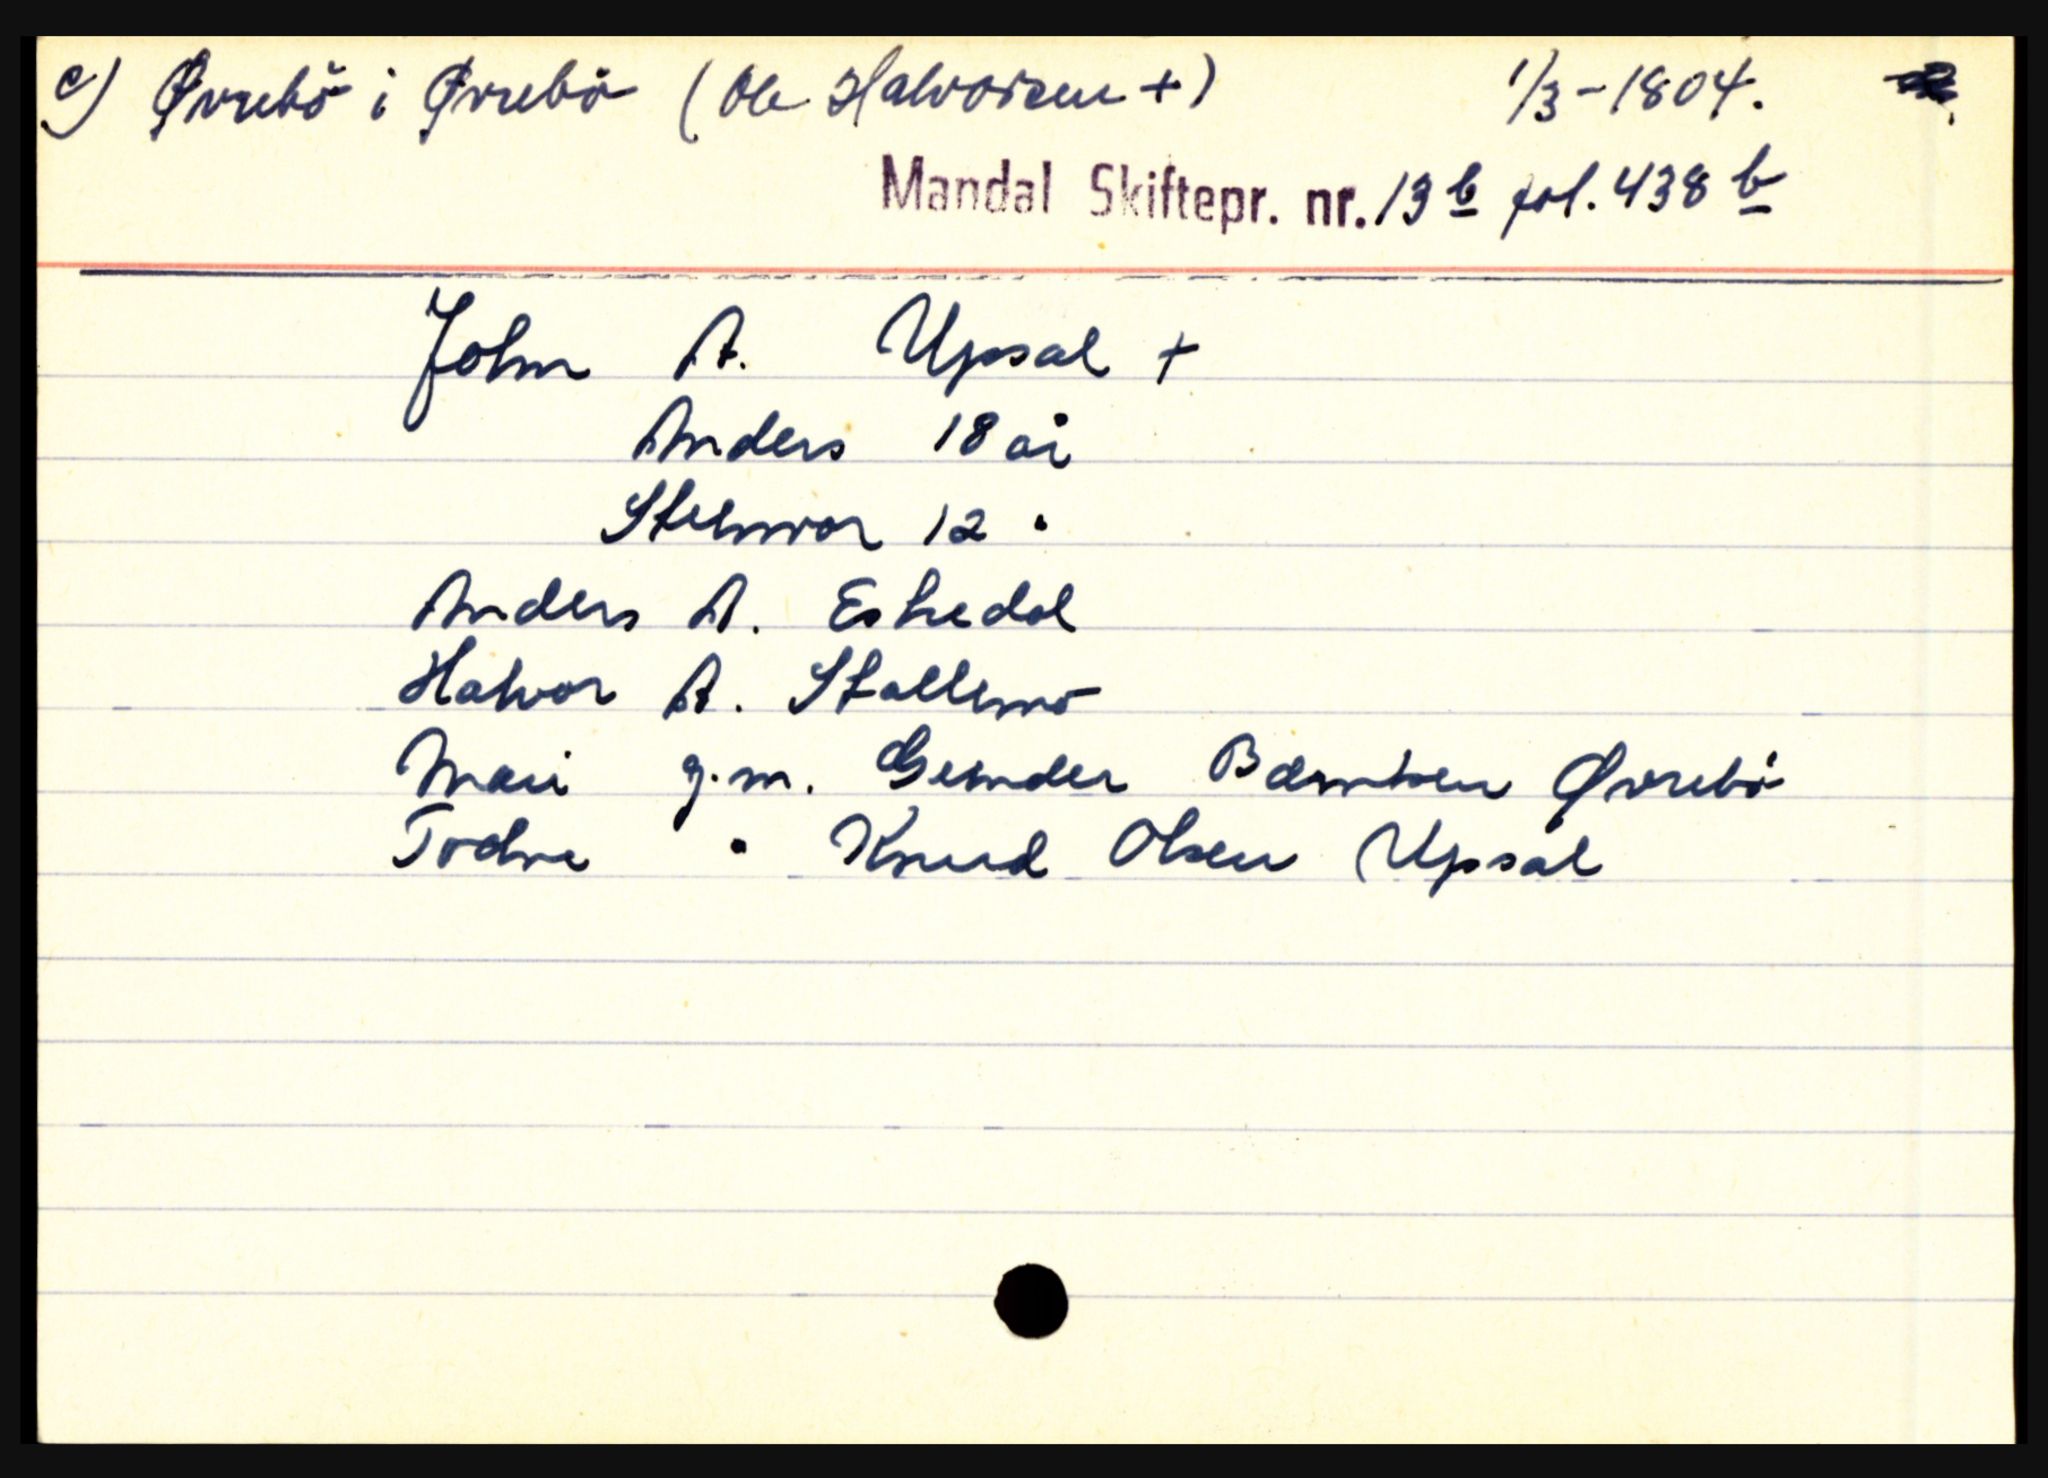 c) Øvrebö i Øvrebö (Ole Halvorsen +) 1/3-1804.
Mandal Skiftepr. nr. 13 b fol. 438 b
John A. Upsal +
Anders 18 år
Stehnvor 12 "
Anders A. Eskedal
Halvor A. Stallemo
Mari g.m. Gunder Berntsen Øvrebö
Todne " Knud Olsen Upsal